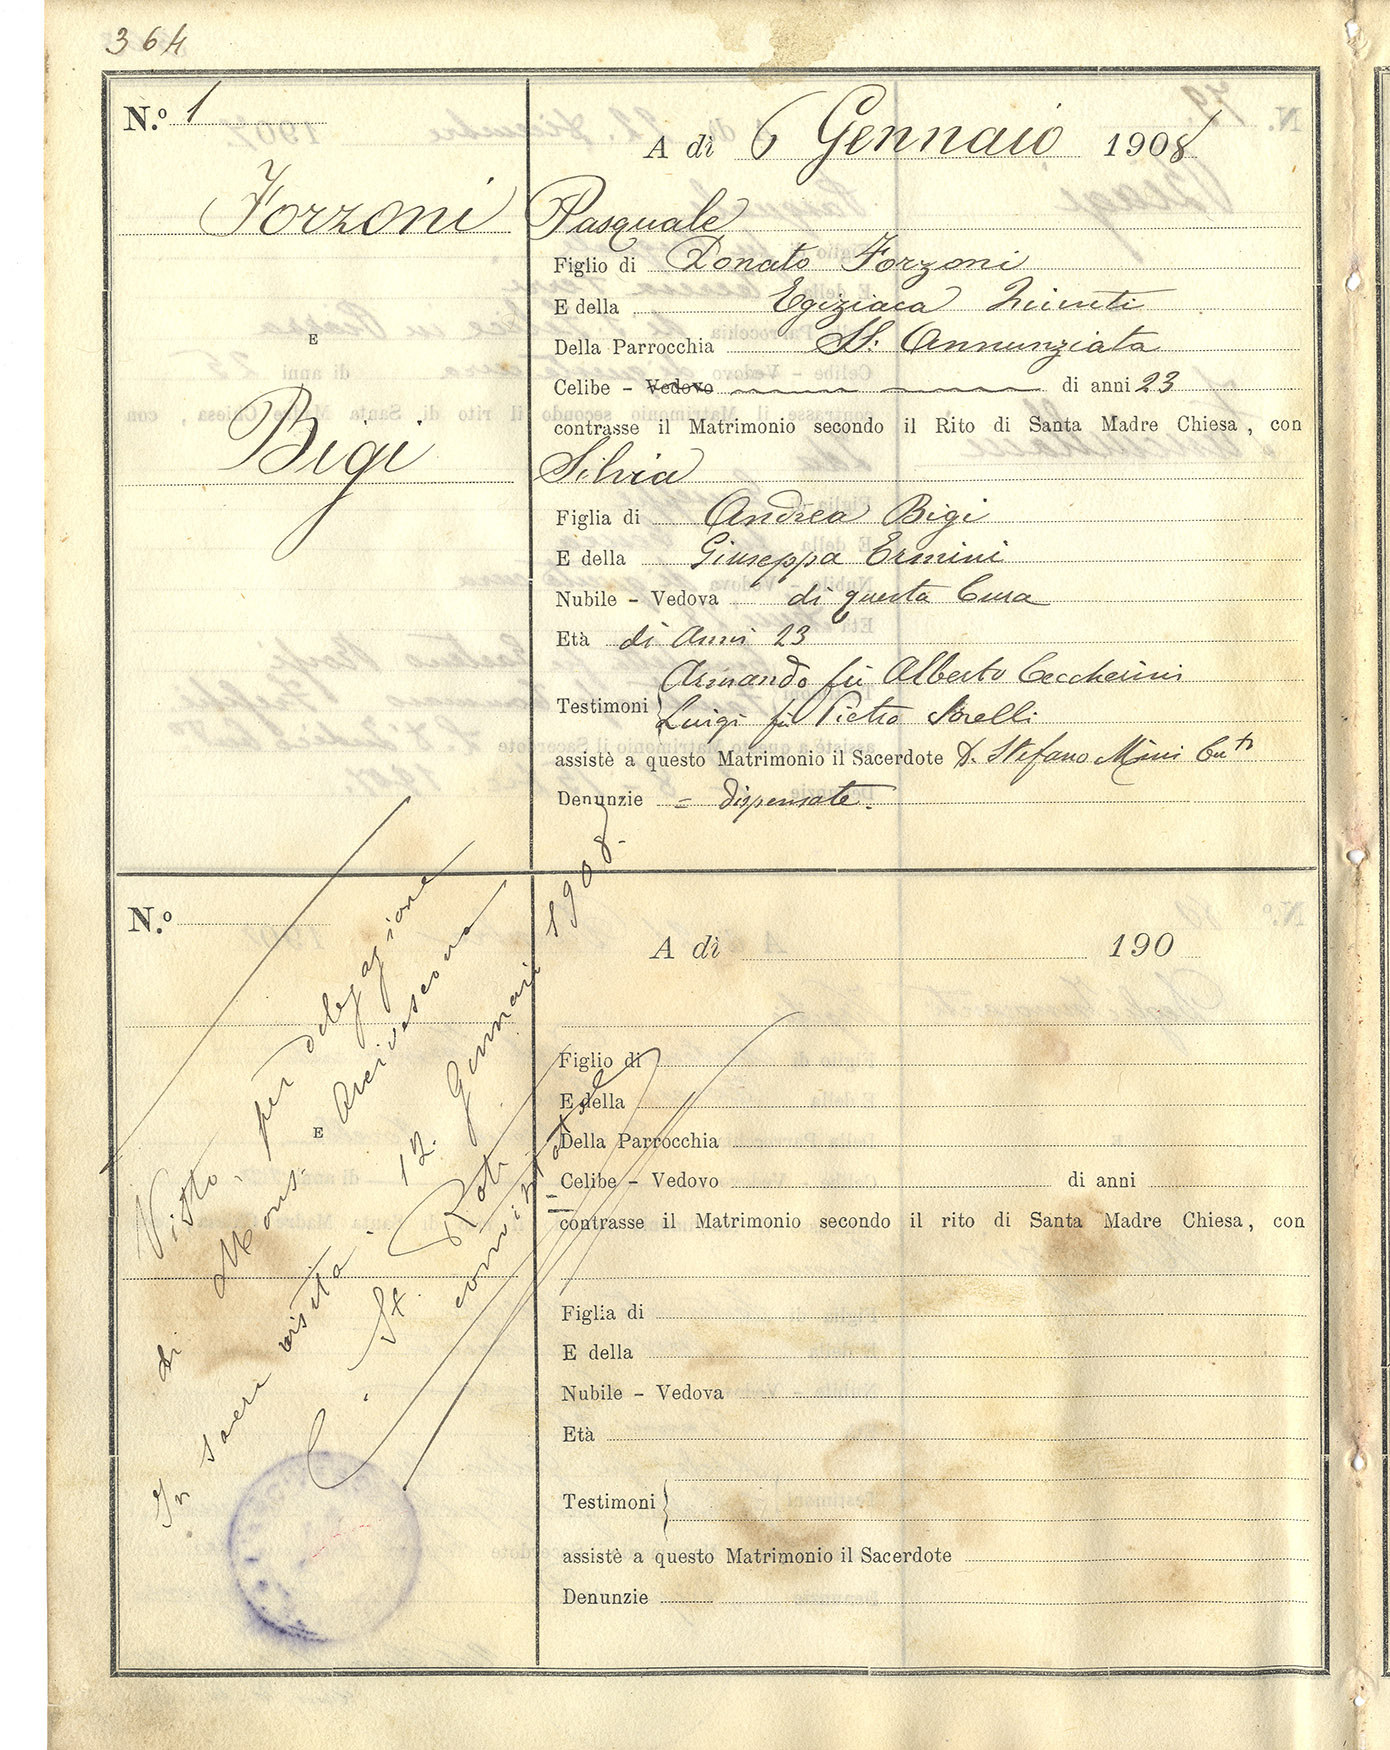 364
N.º 1
A dì 6 Gennaio 1908
Forzoni
E
Bigi
Pasquale
Figlio di Donato Forzoni
E della Egiziaca
Della Parrocchia SS. Annunziata
Celibe - Vedovo di anni 23
contrasse il Matrimonio secondo il Rito di Santa Madre Chiesa, con
Silvia
Figlia di Andrea Bigi
E della Giuseppa Ermini
Nubile - Vedova di questa Cura
Età di Anni 23
Armando fu Alberto Ceccherini
Testimoni
Luigi fu Pietro Sorelli
assistè a questo Matrimonio il Sacerdote D. Stefano Mini
Denunzie = dispensate.
N.º
A dì 190
E
Figlio di
E della
Della Parrocchia
Celibe - Vedovo di anni
contrasse il Matrimonio secondo il rito di Santa Madre Chiesa, con
Figlia di
E della
Nubile - Vedova
Età
Testimoni
assistè a questo Matrimonio il Sacerdote
Denunzie
Visto, per delegazione
di Mons. Arcivescovo
In sacra visita. 12. Gennaio 1908.
St. Roti
convisitatore